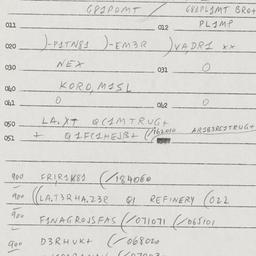 GP1POMT / G8PL1MT BRO+
011 012 PL1MP
020 )-P1TN81 )-EM3R )VA,DR1 xx
030 NEX 031 O
040 KORO, M1SL
041 O 042 O
050 LA,XT Q1M1TRUG+
051 + Q1F1HEJB+ (/163010 AR1B3RS1TRUG+
900 FR1R1K81 (/184060
900 ((LA,T3RHA,Z3R Q1 REFINERY (022
900 F1NAGROJSFAS (/071071 (/065101
900 D3RHUK+ (/068020